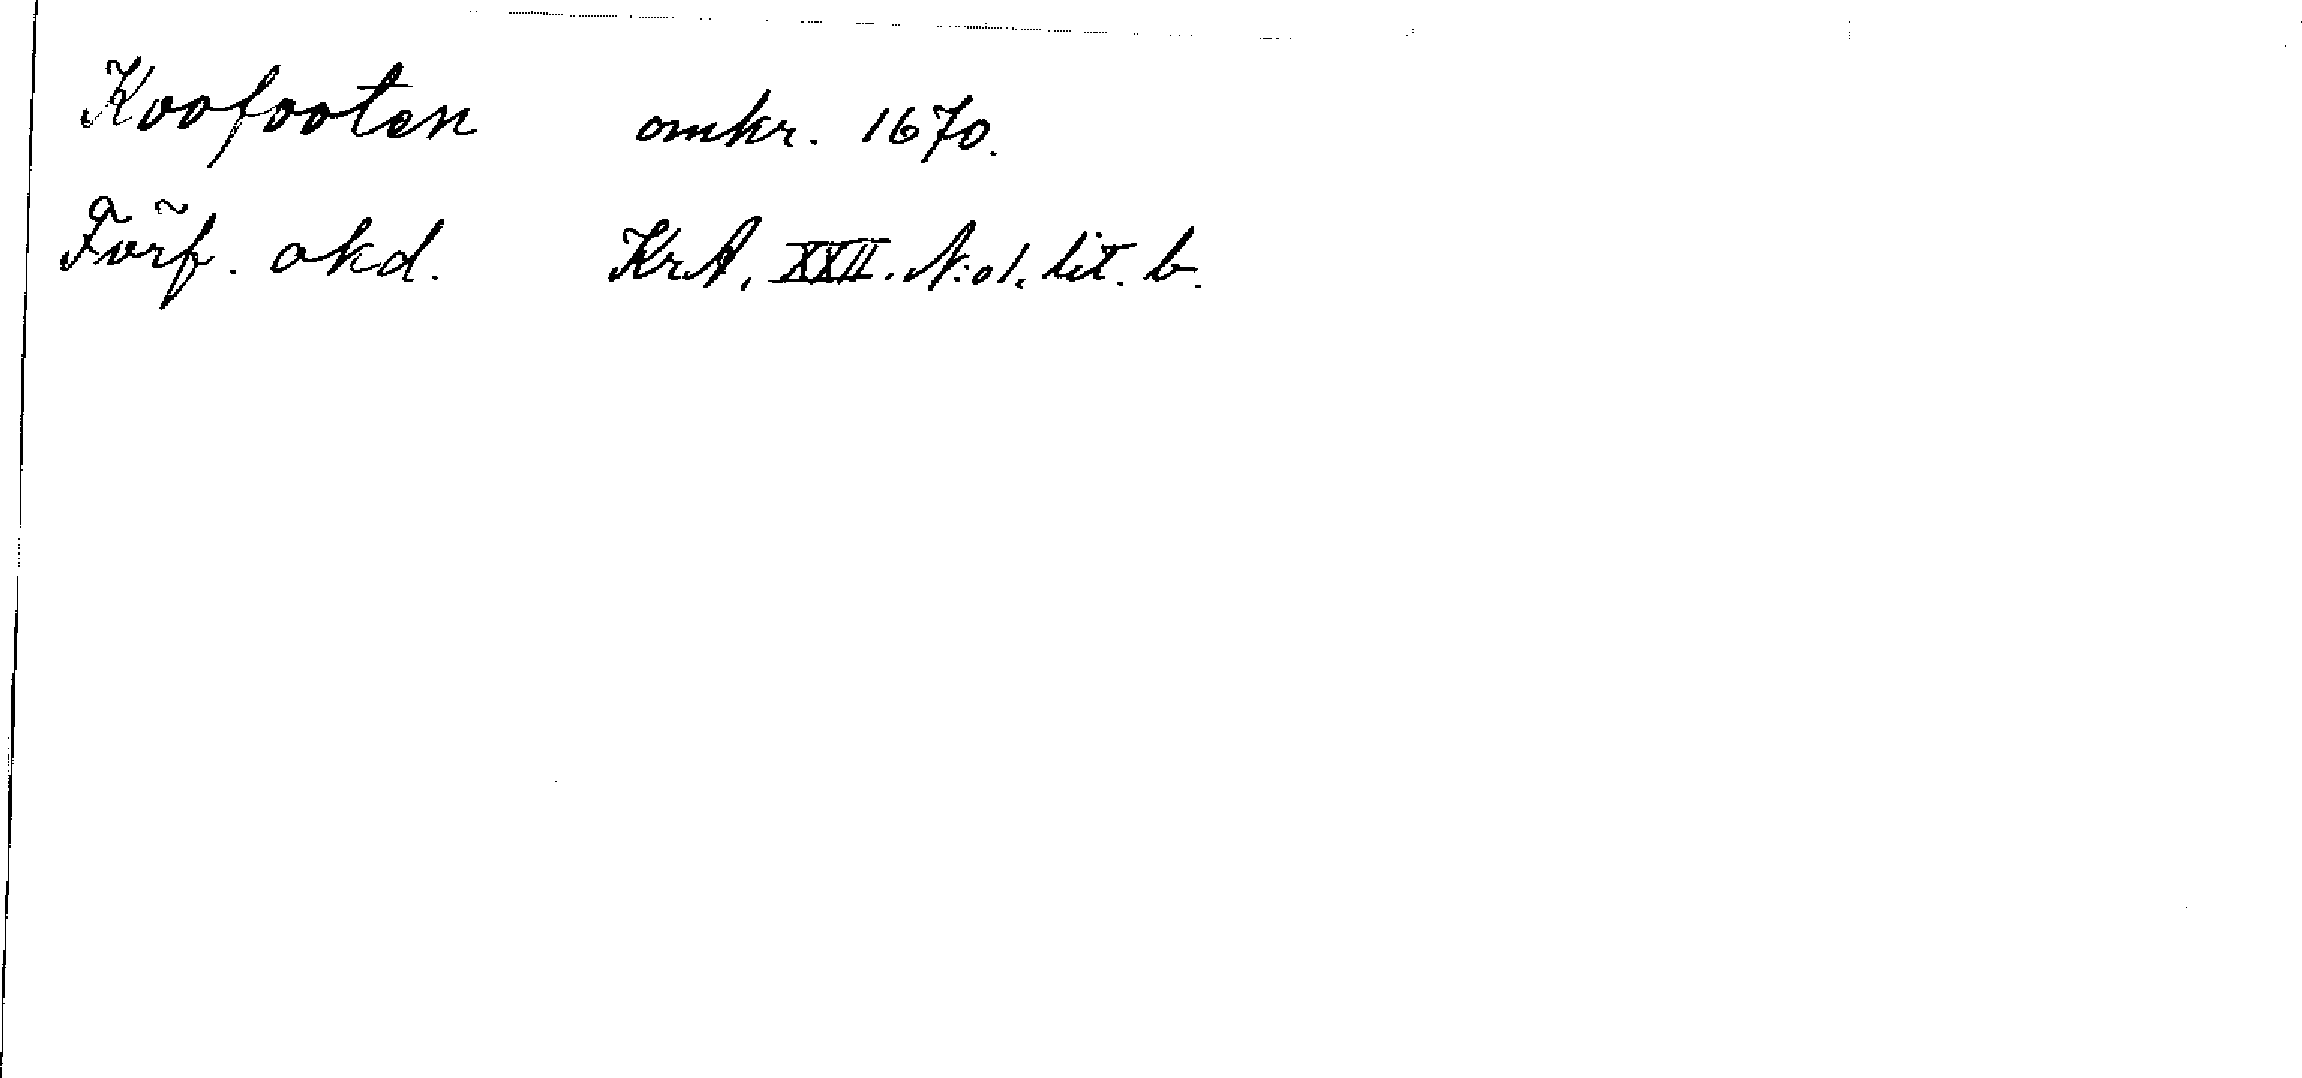 Koofooten omkr. 1670.
Förf. okd. KrA. XXII. N:o 1. lit. b.